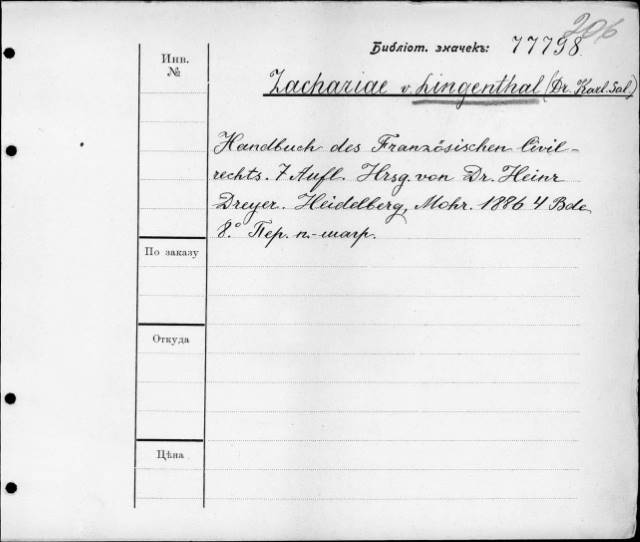 206
Библіот. значекъ: 77798.
Инв.
№
Zachariae v. Lingenthal (Dr. Karl Sal.)
Handbuch des Französischen Civil-
rechts. 7 Aufl. Hrsg. von Dr. Heinr
Dreyer. Heidelberg, Mohr. 1886 4 Bde
8.° Пер. п.-шагр.
По заказу
Откуда
Цѣна